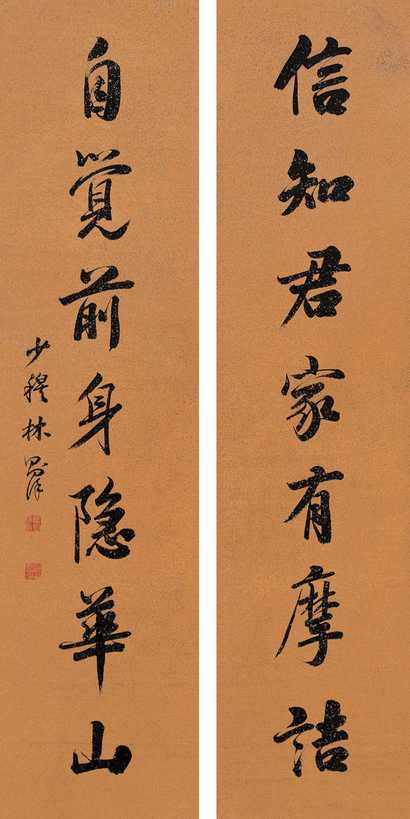 信知君家有摩詰
自覺前身隱華山
少穆林則徐